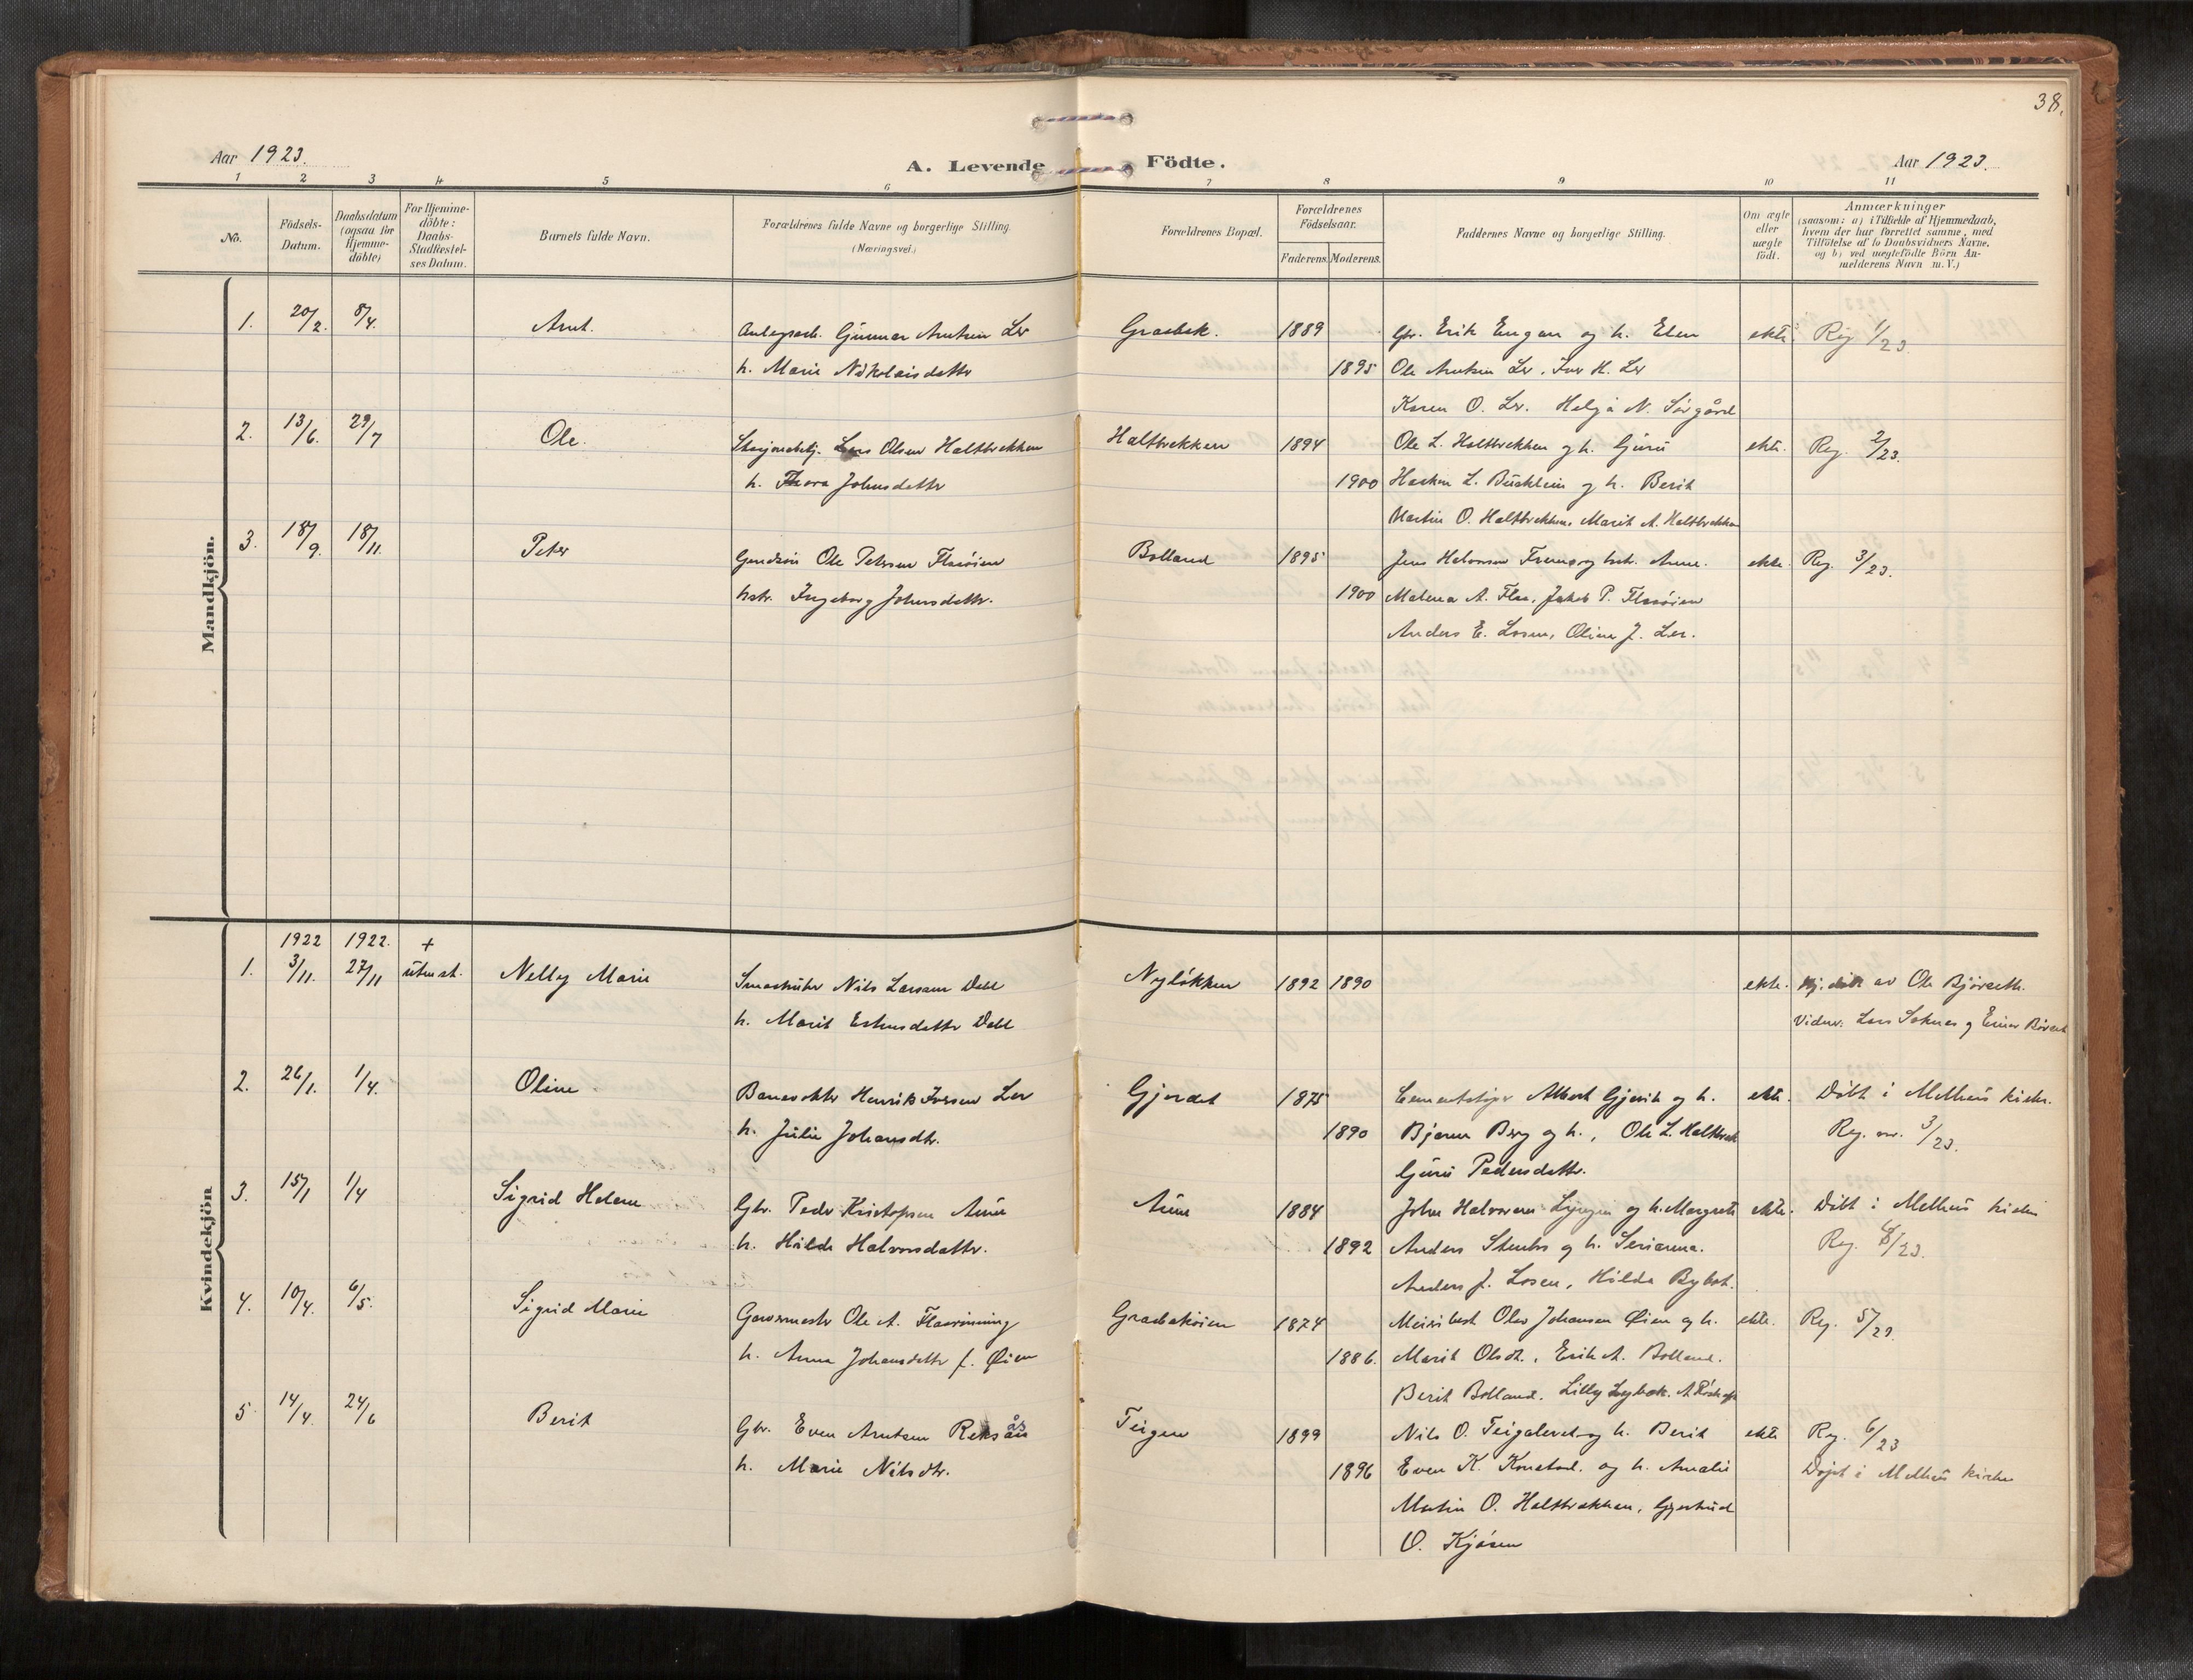 38.
Aar 1923.
A. Levende Födte.
Aar 1923.
1 2 3 4 5 6 7 8 9 10 11
No.
Födsels-Datum.
Daabsdatum (ogsaa for Hjemme-döbte)
For Hjemme-döbte: Daabs-Stadfæstel-ses Datum.
Barnets fulde Navn.
Forældrenes fulde Navne og borgerlige Stilling.
(Næringsvei.)
Forældrenes Bopæl.
Forældrenes Födselsaar.
Faderens. Moderens.
Faddernes Navne og borgerlige Stilling.
Om ægte eller uægte födt.
Anmærkninger
(saasom: a) i Tilfælde af Hjemmedaab,
hvem der har forrettet samme, med
Tilföielse af to Daabsvidners Navne,
og b) ved uægtefödte Börn An-
melderens Navn m. V.)
Mandkjön.
1. 20/2. 8/4. Arnt. Gunnar Arntsen Ler Grasbek. 1889 Gbr. Erik Engan og h. Elen ekte Reg. 1/23
h. Marie Nikolaisdatter 1895 Ole Arntsen Ler, Iver H. Ler
Karen O. Ler. Helga N. Sørgård
2. 13/6. 29/7 Ole. Lars Olsen Haltbrekken Haltbrekken 1894 Ole L. Haltbrekken og h. Guru ekte. Reg. 2/23.
h. Thora Johnsdatter 1900 Haakon L. Bucklein og h. Berit
Martin O. Haltbrekken, Marit A. Haltbrekken
3. 18/9. 18/11. Peter Ole Petersen Flaaøien Bolland 1895 Jens Halvorsen og hstr. Anne. ekte. Reg. 3/23.
hstr. Ingeborg Johnsdatter. 1900 Malena A. Flaa, Jakob P. Flaaøien
Anders E. Losen, Oline J. Ler.
Kvindekjön
1922 1922. +
1. 3/11. 27/11 Nelly Marie Smaabruker Nils Larsen Dahl Nyløkken 1892 1890 ekte. Hj. døbt av Ole Bjørseth.
h. Marit Estensdatter Dahl Vidner: Lars Søknes og Einar
2. 26/1. 1/4. Oline Banevokter Henrik Iversen Ler Gjerdet 1875 Albert Gjervik og h. ekte. Døbt i Melhus kirke.
h. Julie Johansdtr. 1890 Bjarne Berg og h., Ole L. Haltbrek Reg. nr. 3/23.
Guru Pedersdatter.
3. 15/1 1/4 Sigrid Helene Gbr. Peder Kristofsen Aune Aune 1884 John Halvorsen Lyngen og h. Margrete ekte. Døbt i Melhus kirke
h. Hilda Halvorsdatter. 1892 Anders Stenbro og h. Serianna. Reg.
Anders J. Losen, Hilda Bybrot.
4. 10/4. 6/5. Sigrid Marie Garvermester Ole A. Flaarønning Grasbakøien 1874 Olav Johansen Øien og h. ekte. Reg. 5/23.
h. Anna Johansdatter f. Øien 1886. Marit Olsdt., Erik A. Bolland.
Berit Bolland. Lilly
5. 14/4. 24/6 Berit Gbr. Even Arntsen Reksås Teigen 1899 Nils O. Teigaleret og h. Berit ekte Reg. 6/23
h. Marie Nilsdtr. 1896 Even K. og h. Amalie Døpt i Melhus kirke
Martin O. Haltbrekken, Gjertrud
O. Kjøsen